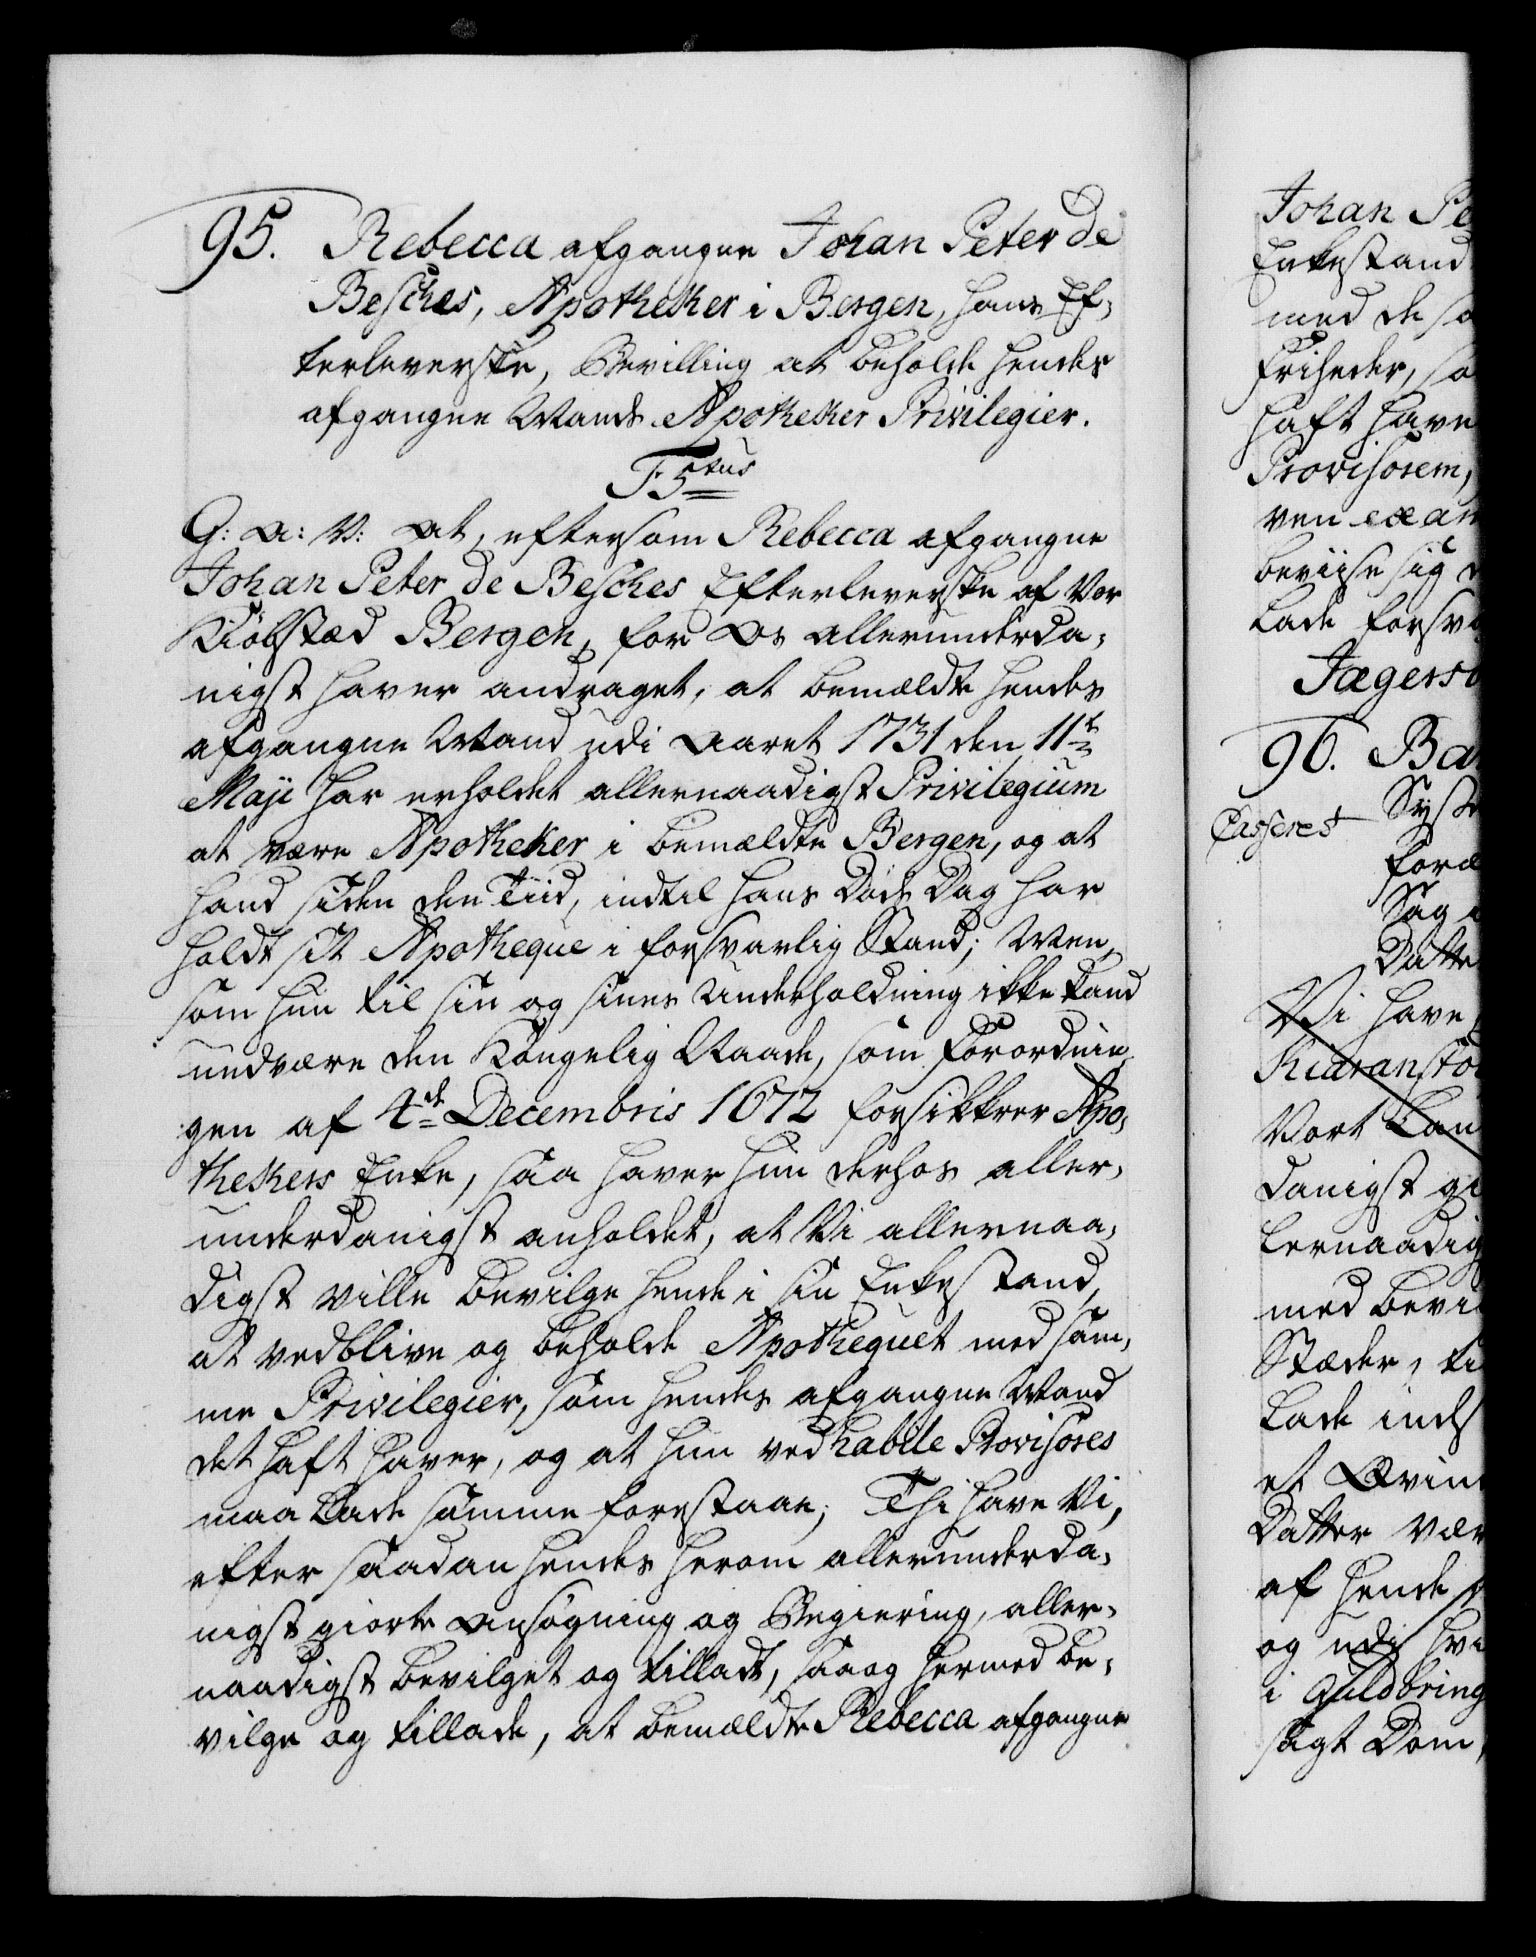 95. Rebecca afgangne Johan Peter de
Besches, Apotheker i Bergen, hans Ef-
terleverske, Bevilling at beholde hendes
afgangne Mands Apotheker Privilegier.
F 5tus
G: A: V: At, eftersom Rebecca afgangne
Johan Peter de Besches Efterleverske af Vor
Kiöbstæd Bergen, for Os allerunderda-
nigst haver andraget, at bemældte hendes
afgangne Mand udi Aaret 1731 den 11te
Maji har erholdet allernaadigst Privilegium
at være Apotheker i bemældte Bergen, og at
hand siden den Tiid, indtil hans Döds Dag har
holdt sit Apotheque i forsvarlig Stand; Men,
som hun til sin og sines Underholdning ikke kand
undvære den Kongelig Naade, som Forordnin-
gen af 4de Decembris 1672 forsikkrer Apo-
thekers Enke, saa haver hun derhos aller-
underdanigst anholdet, at Vi allernaa-
digst ville bevilge hende i sin Enkestand,
at vedblive og beholde Apothequet med sam-
me Privilegier, som hendes afgangne Mand
det haft haver, og at hun ved habile Provisores
maa lade samme forestaae; Thi have Vi,
efter saadan hendes herom allerunderda-
nigst giorte Ansögning og Begiering, aller-
naadigst bevilget og tilladt, saa og hermed be-
vilge og tillade, at bemældte Rebecca afgangne
Johan Pe
Enkestand
med de sa
Friheder, so
haft have
Provisorem,
ven exam
beviise sig
lade forsva
Jægerso
96. Ba
Casseres
Syst
foræ
Sag
Datte
Vi have
Vort Lan
danigst gi
lernaadig
med bevi
Stæder, ti
lade inds
et Qvin
Datter vær
af hende
og udi hvi
i Guldbring
sagt Dom